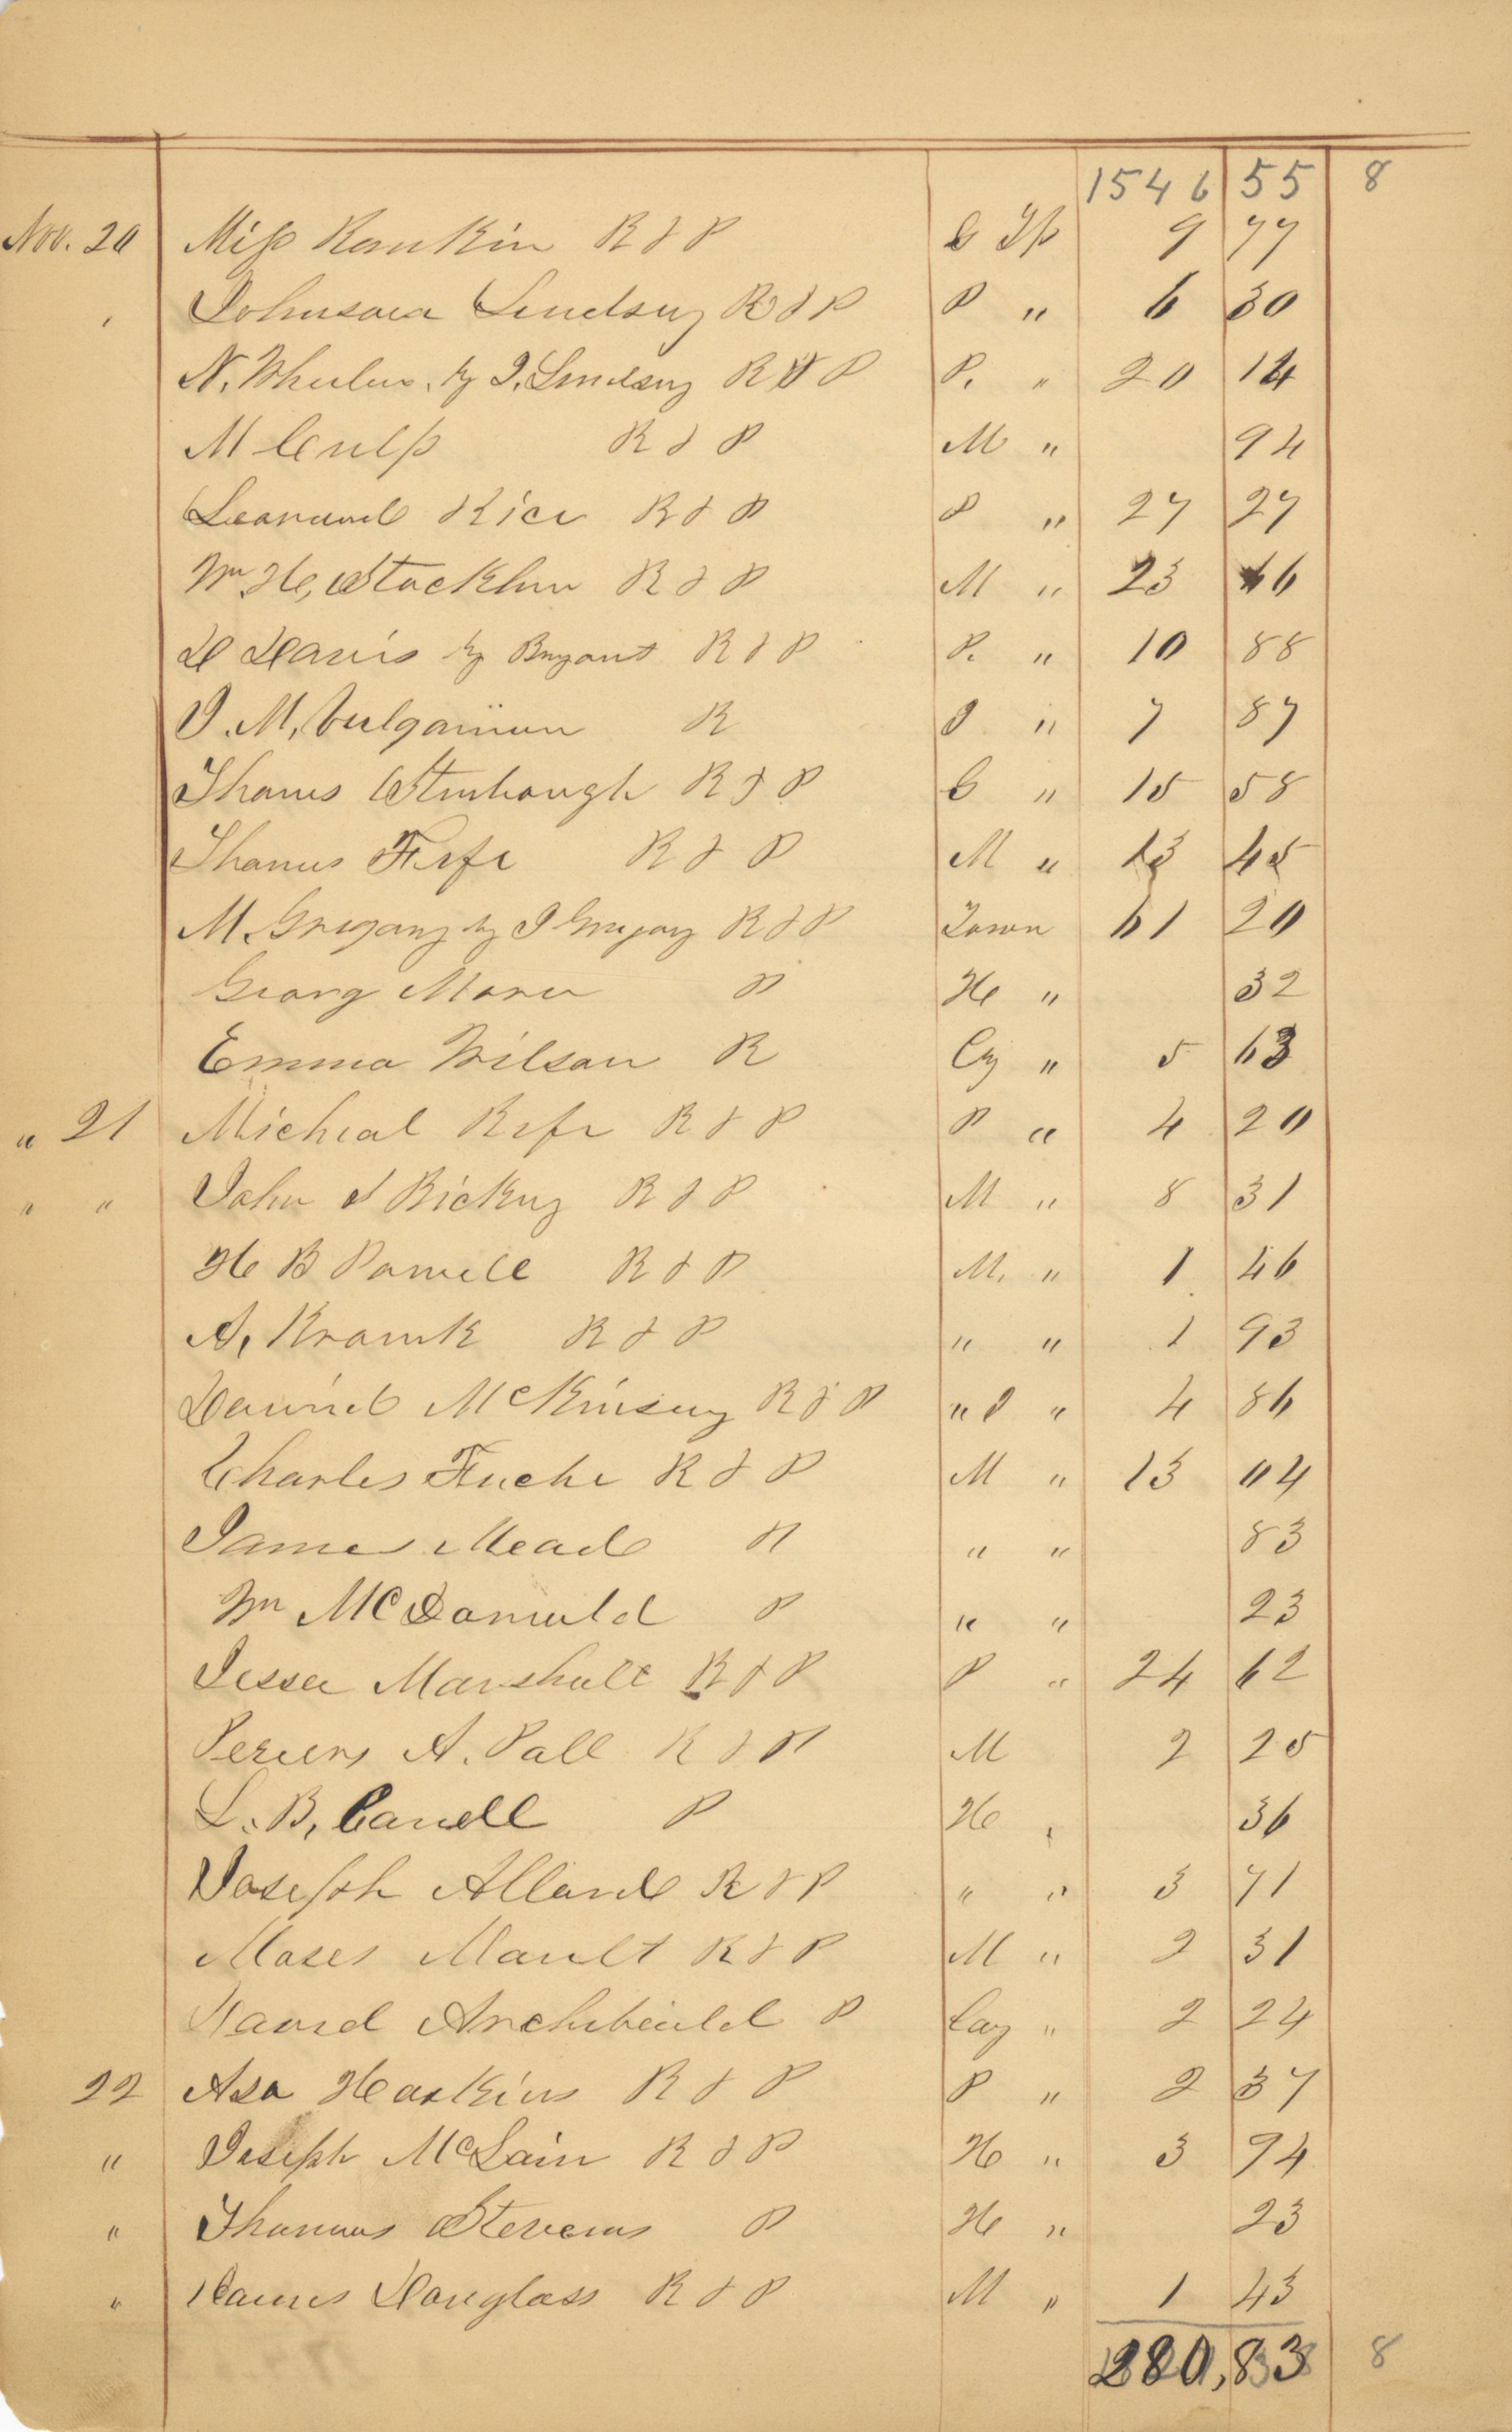 1546 55 8
Nov. 20 Miss Rankin R & P C Tp 9 77
Lindsey R & P P " 6 30
N. by J. Lindsey R & P P. " 20 14
M Culp R & P M " 94
Leonard Rice R & P P " 27 27
Wm H, R & P M " 23 66
D Davis by Bryant R & P P. " 10 88
J. M, R J " 7 87
Thomas R & P C " 15 58
Thomas R & P M " 13 45
M. Gregory by J Gregory R & P Town 61 20
Georg P H " 32
Emma Wilson R Cy " 5 63
" 21 Micheal R & P P " 4 20
" " John R & P M " 8 31
H B Powell R & P M. " 1 46
A, R & P " " 1 93
McKinsey R & P " J " 4 86
Charles R & P M " 13 04
James Mead P " " 83
Wm McDonald P " " 23
Jesse Marshall R & P P " 24 62
A. R & P M 2 25
L. B, P H 36
Joseph Allard R & P " " 3 71
Moses Mault R & P M " 2 31
David P Cay " 2 24
22 Asa Haskins R & P P " 2 37
" Joseph McLain R & P H " 3 94
" Thomas Stevens P H " 23
" James Douglass R & P M " 1 43
280,83 8